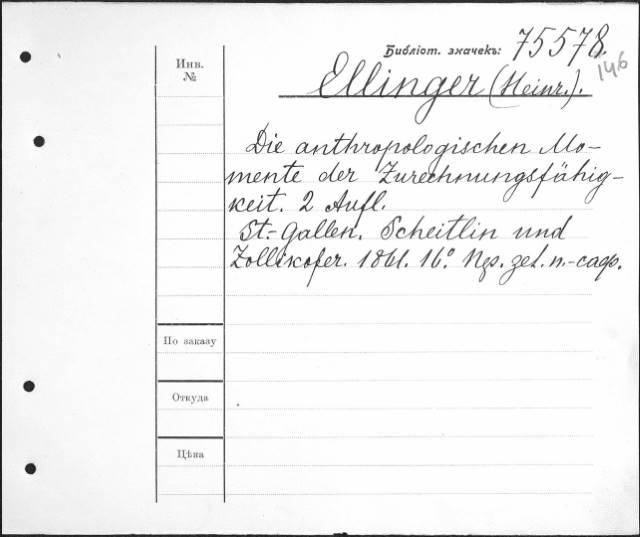 Инв.
№
Библіот. значекъ: 75578.
146
Ellinger (Heinr.).
Die anthropologischen Mo-
mente der Zurechnungsfähig-
keit. 2 Aufl.
St.-Gallen. Scheitlin und
Zollikofer. 1861. 16.º
По заказу
Откуда
Цѣна